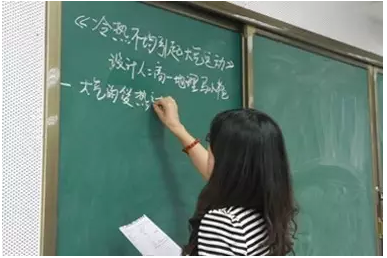 《冷热不均引起大气运动》
设计人:高一地理马小艳
一 大气的受热